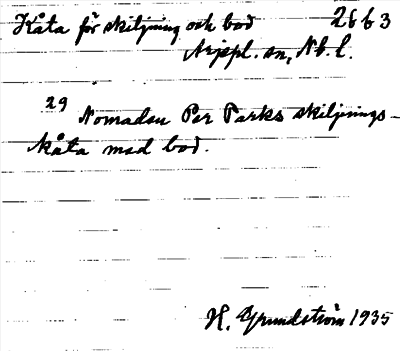 Kåta för skiljning och bod 2663
Arjepl. sn, Nb. l.
29 Nomaden Per Parks skiljnings-
kåta med bod.
H. Grundström 1935